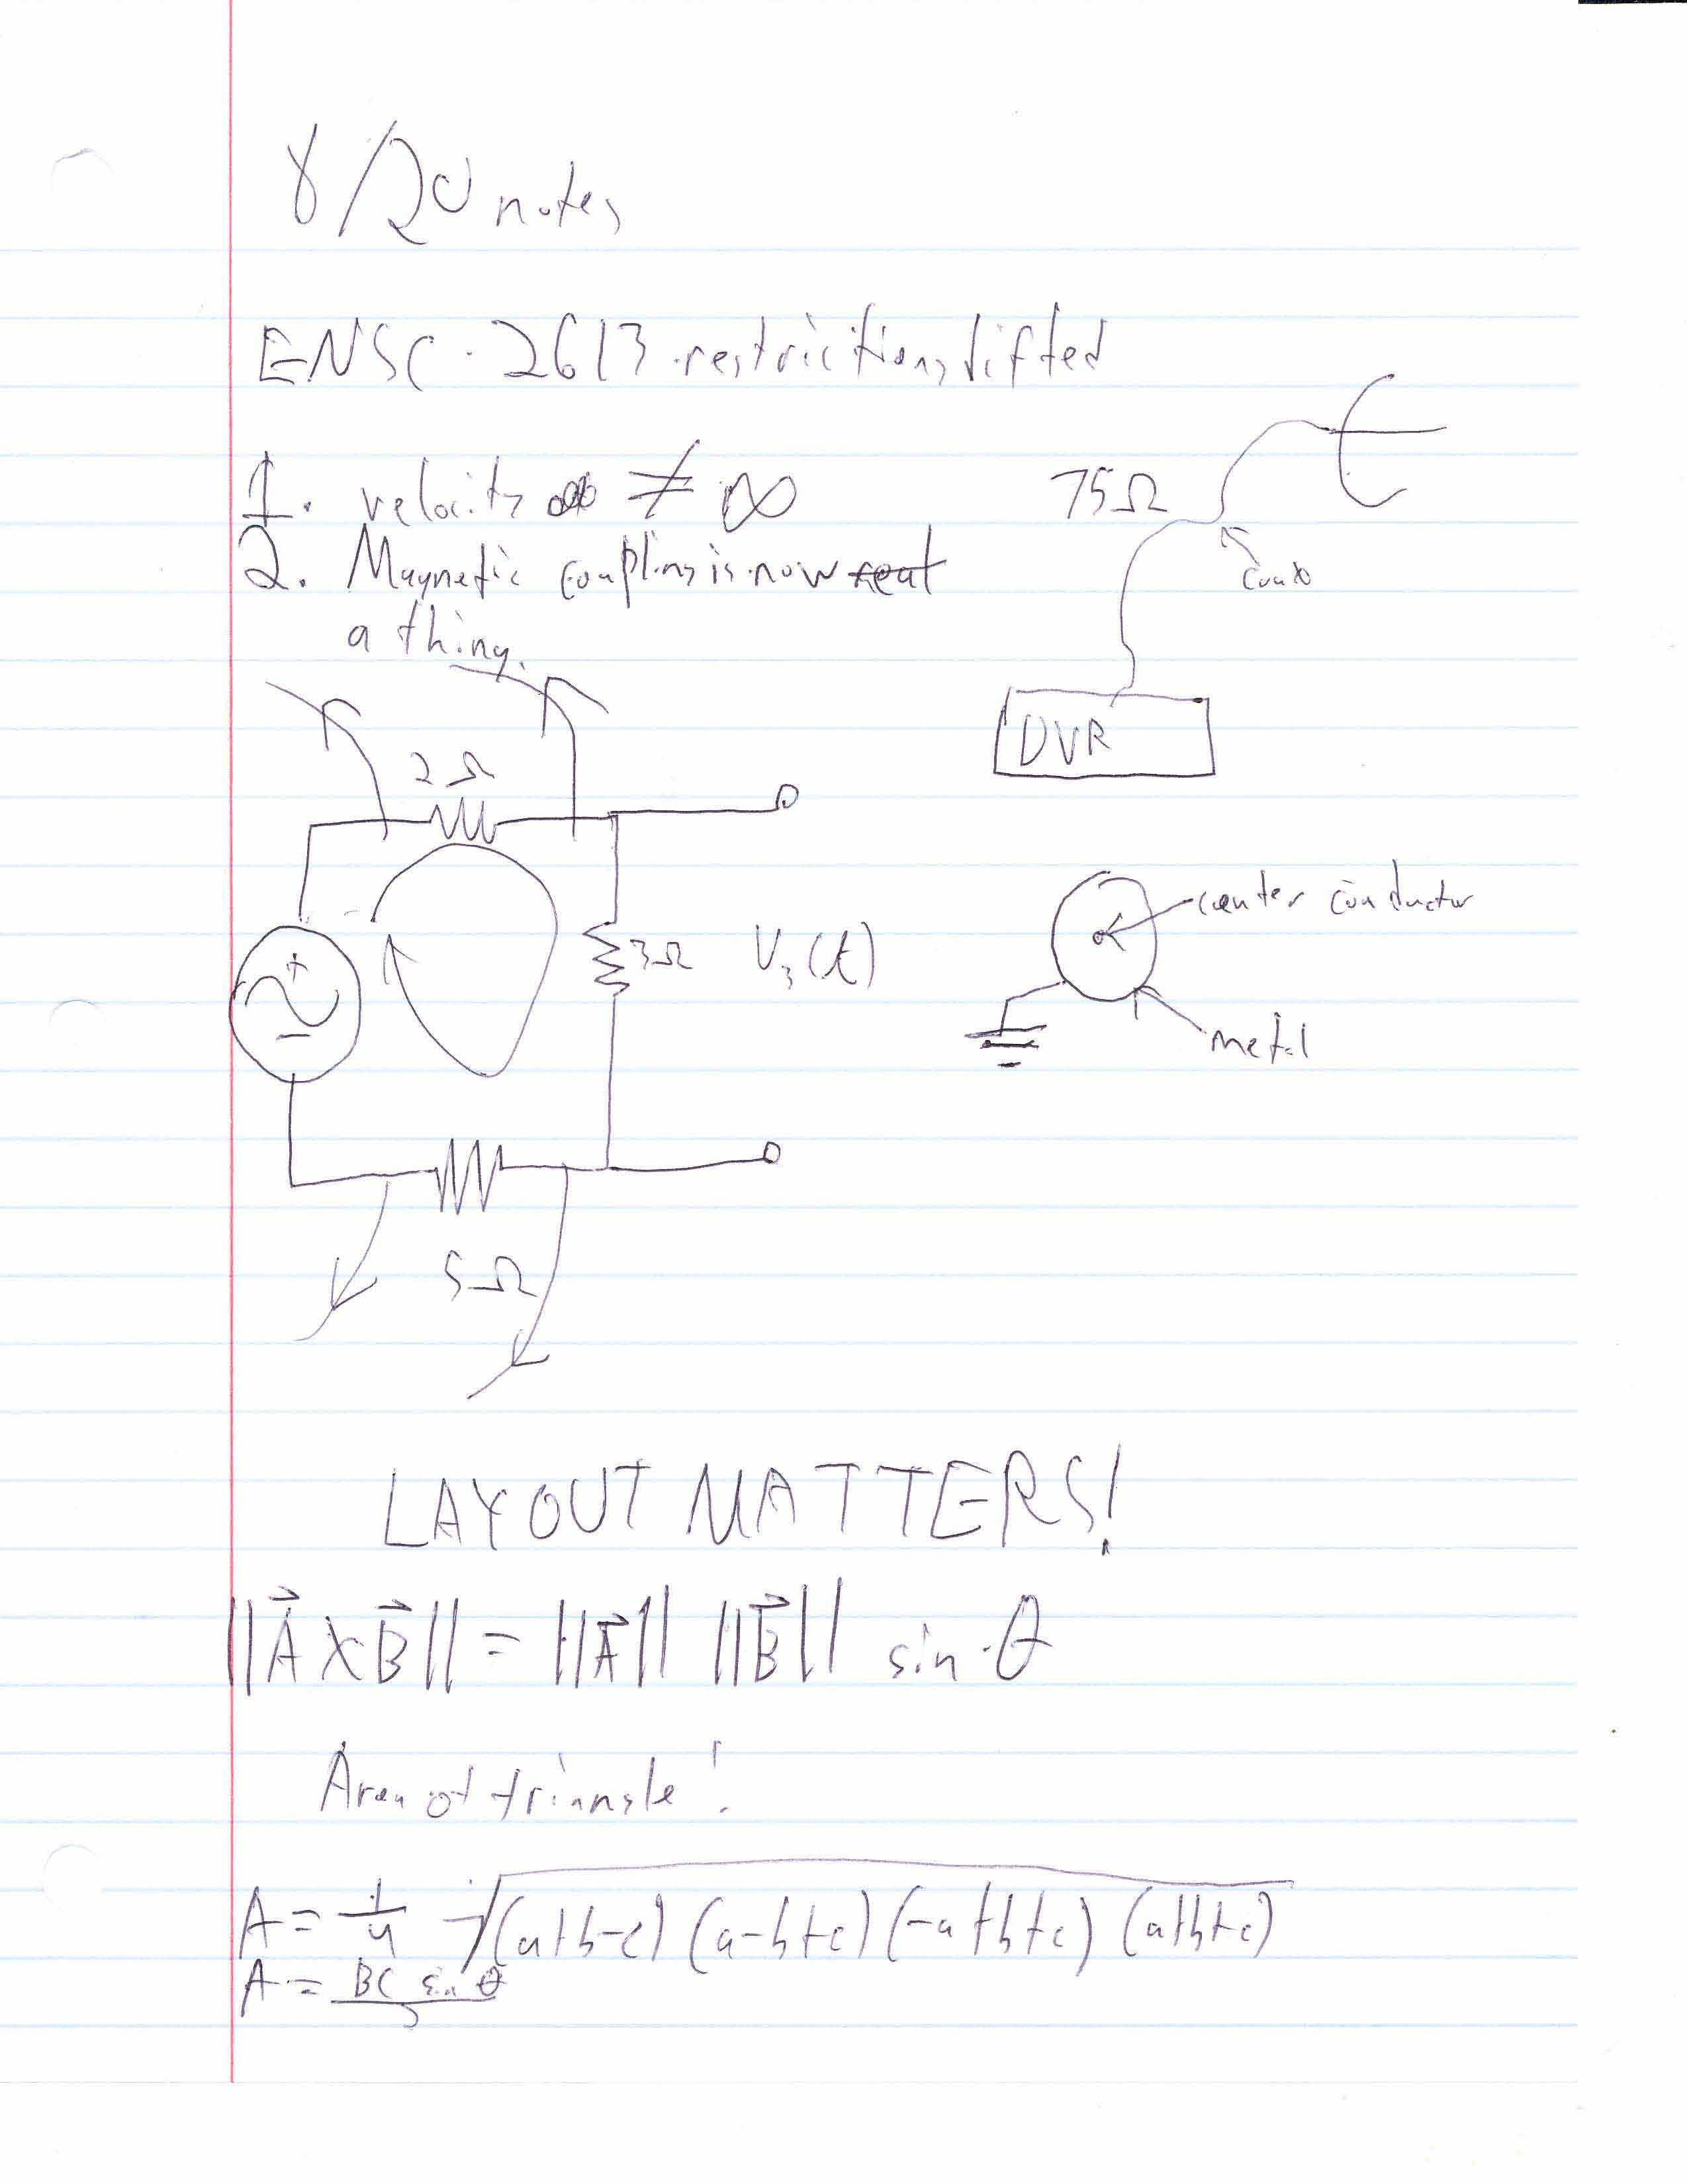 8/20 notes
ENSC 2613 restricitions lifted
1. velocity ≠ ∞
75Ω
2. Magnetic coupling is now real
coax
a thing.
DVR
2Ω
center conductor
+
3Ω V₃(t)
−
metal
5Ω
LAYOUT MATTERS!
||A⃗ x B⃗|| = ||A⃗|| ||B⃗|| sin θ
Area of triangle!
A = 1/4 √(a+b-c) (a-b+c) (-a+b+c) (a+b+c)
A = BC sin θ / 2